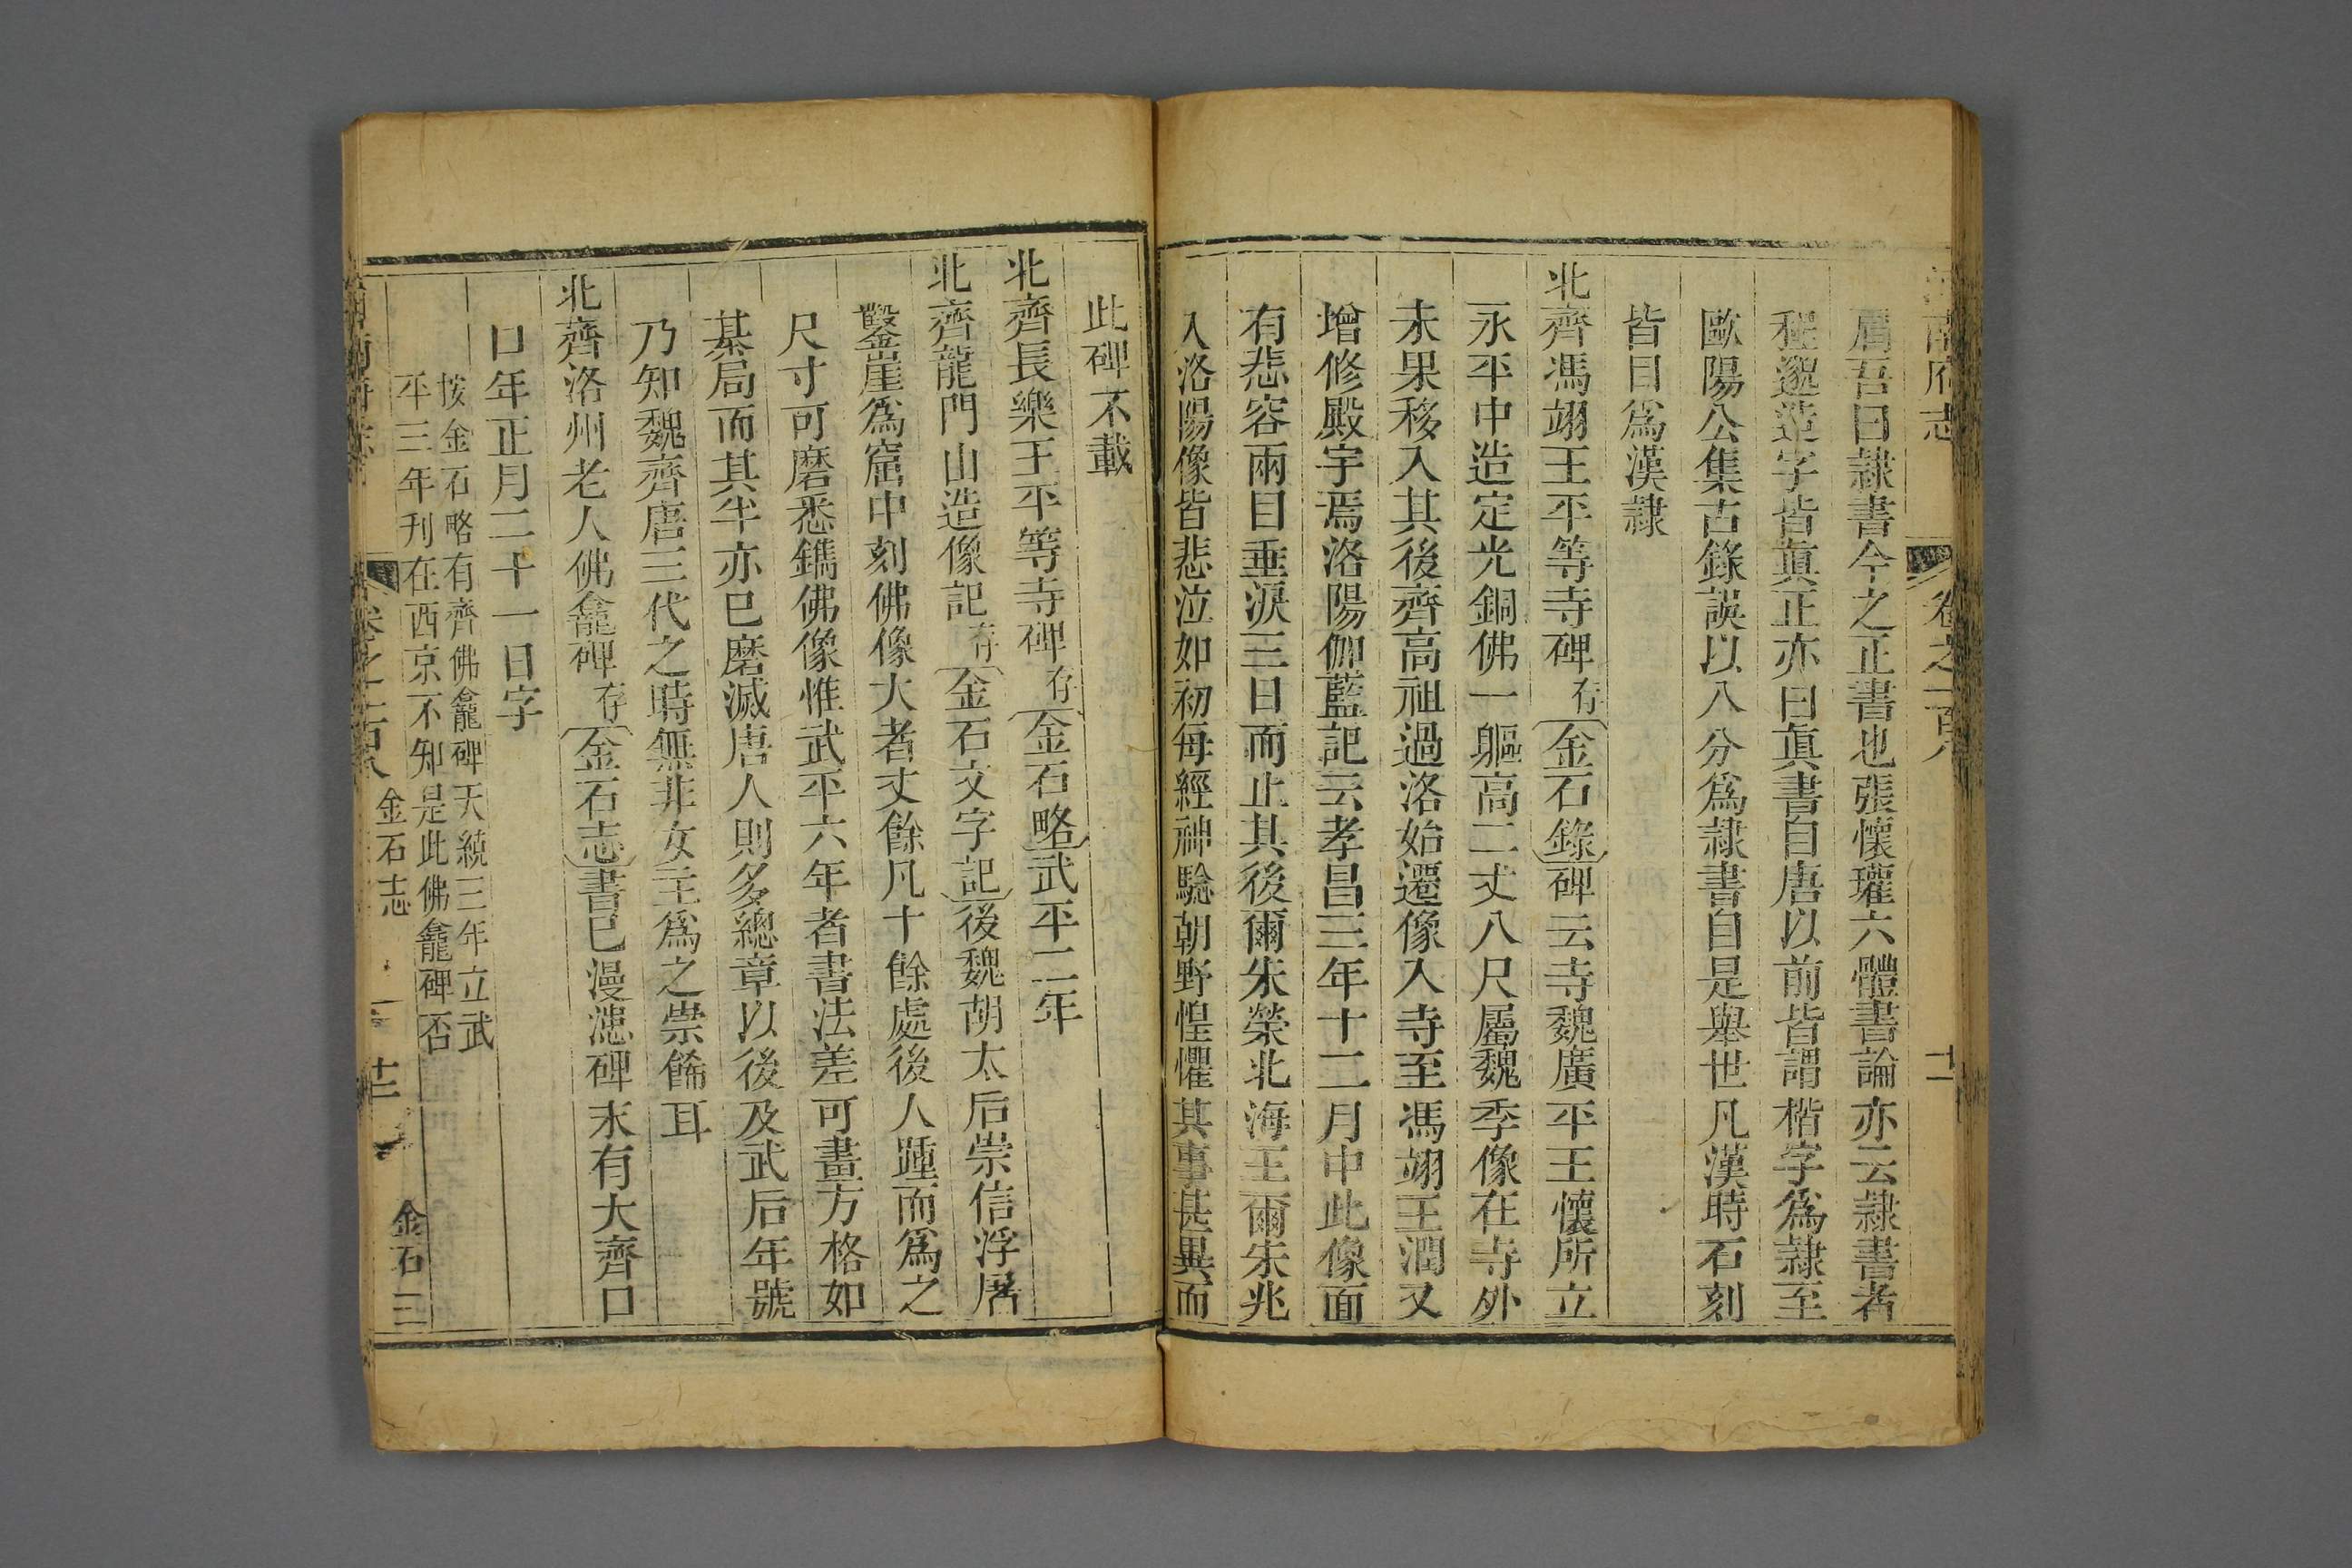 南府志 卷之一百八 十二
肩吾曰隷書今之正書也張懷瓘六體書論亦云隷書者
程邈造字皆眞正亦曰眞書自唐以前皆謂楷字爲隷至
歐陽公集古錄誤以八分爲隷書自是舉世凡漢時石刻
皆目爲漢隷
北齊馮翊王平等寺碑存金石錄碑云寺魏廣平王懷所立
永平中造定光銅佛一軀高二丈八尺屬魏季像在寺外
未果移入其後齊高祖過洛始遷像入寺至馮翊王潤又
增修殿宇焉洛陽伽藍記云孝昌三年十二月中此像面
有悲容兩目垂淚三日而止其後爾朱榮北海王爾朱兆
入洛陽像皆悲泣如初每經神驗朝野惶懼其事甚異而
此碑不載
北齊長樂王平等寺碑存金石略武平二年
北齊龍門山造像記存金石文字記後魏胡太后崇信浮屠
鑿崖爲窟中刻佛像大者丈餘凡十餘處後人踵而爲之
尺寸可磨悉鐫佛像惟武平六年者書法差可畫方格如
棊局而其半亦已磨滅唐人則多總章以後及武后年號
乃知魏齊唐三代之時無非女主爲之祟餙耳
北齊洛州老人佛龕碑存金石志書已漫漶碑末有大齊口
口年正月二十一日字
按金石略有齊佛龕碑天統三年立武
平三年刊在西京不知是此佛龕碑否
南府志 卷之一百八 金石志 十三 金石三